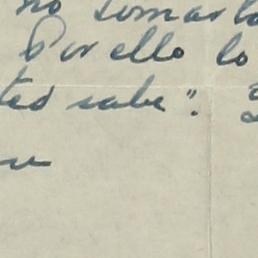 no tomarlo
Por ello lo
ted sabe".